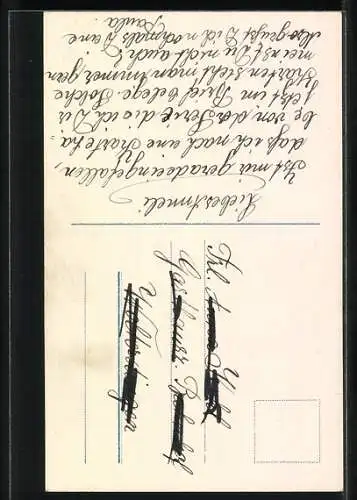 Liebes Anneli.
Ist mir gerade eingefallen,
daß ich noch eine Karte ha-
be, von der Serie die ich Dir
jetzt im Brief belege. Solche
Karten sieht man immer gern
meinst Du nicht auch?
Also grüßt Dich nochmals Deine
Paula.
Frl.
Gasthaus z.